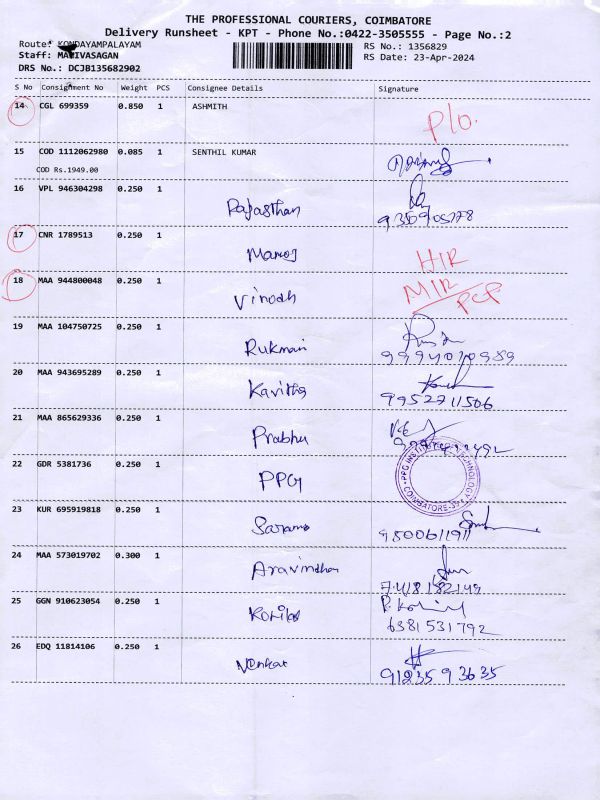 THE PROFESSIONAL COURIERS, COIMBATORE
Delivery Runsheet - KPT - Phone No.:0422-3505555 - Page No.:2
Route: KONDAYAMPALAYAM
RS No.: 1356829
Staff: MANIVASAGAN
RS Date: 23-Apr-2024
DRS No.: DCJB135682902
S No Consignment No Weight PCS Consignee Details Signature
14 CGL 699359 0.850 1 ASHMITH
P/O.
15 COD 1112062980 0.085 1 SENTHIL KUMAR
COD Rs.1949.00
16 VPL 946304298 0.250 1
Rajasthan
17 CNR 1789513 0.250 1
Manoj HIR
18 MAA 944800048 0.250 1
Vinodh MIR PCP
19 MAA 104750725 0.250 1
Rukmani
20 MAA 943695289 0.250 1
Kavitha
9952711506
21 MAA 865629336 0.250 1
Prabhu
22 GDR 5381736 0.250 1
PPG
PPG INSTITUTE TECHNOLOGY
COIMBATORE-35
23 KUR 695919818 0.250 1
9500611911
24 MAA 573019702 0.300 1
Aravindhan
25 GGN 910623054 0.250 1
6381531792
26 EDQ 11814106 0.250 1
Venkat
9123593635